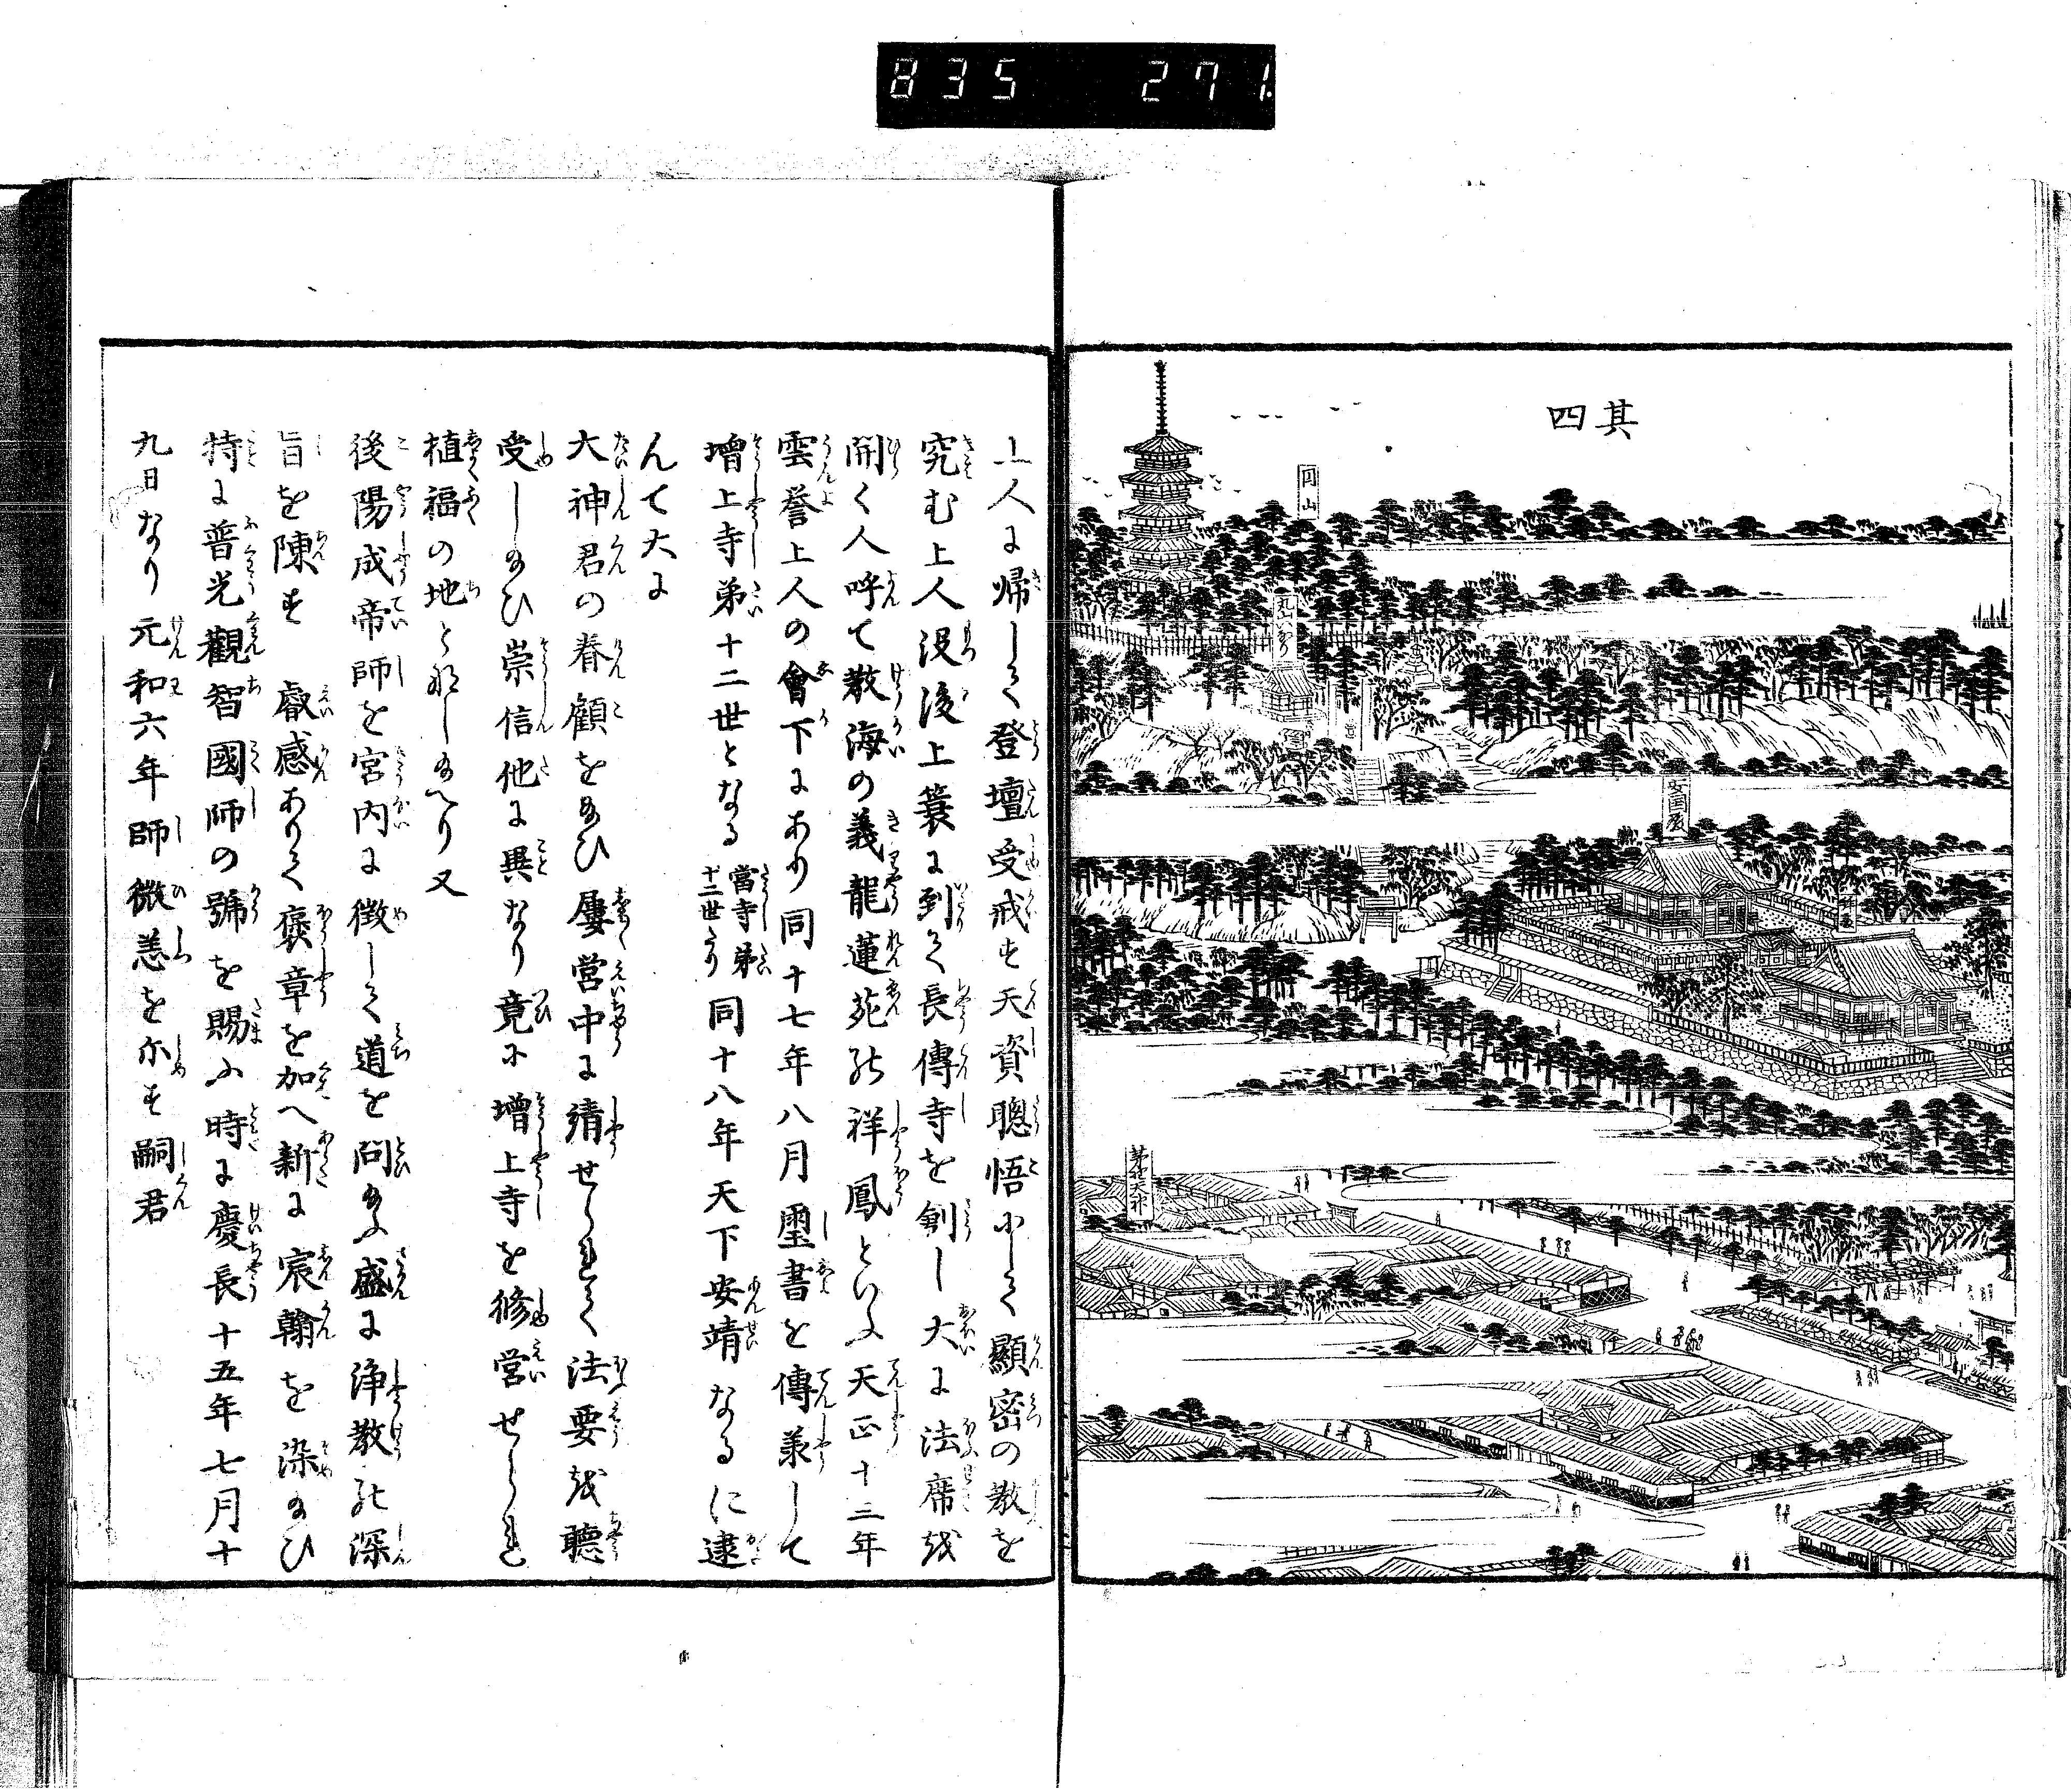 835 271
其四
圓山
丸山いなり
安国殿
茅野天神
上人に帰して登壇受戒す天資聰悟にして顯密の教を
究む上人没後上蓑に到て長傳寺を剏し大に法席を
開く人呼て教海の義龍蓮苑の祥鳳といふ天正十二年
雲誉上人の會下にあり同十七年八月璽書を傳承して
增上寺第十二世となる
當寺第
十二世なり
同十八年天下安靖なるに逮
んて大に
大神君の眷顧を給ひ屢営中に請せられて法要を聴
受し給ひ崇信他に異なり竟に増上寺を修営せられ
植福の地となし給へり又
後陽成帝師を宮内に徴して道を問給ふ盛に浄教の深
旨を陳す 叡感ありて褒章を加へ新に宸翰を染給ひ
特に普光觀智國師の號を賜ふ時に慶長十五年七月十
九日なり元和六年師微恙を示す嗣君